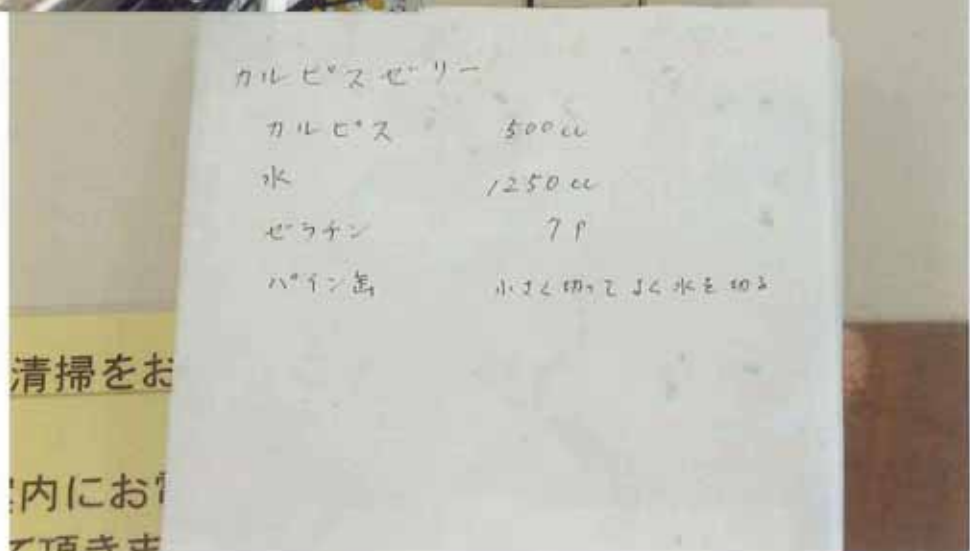 カルピスゼリー
カルピス 500cc
水 1250cc
ゼラチン 7P
パイン缶 小さく切ってよく水を切る
清掃をお
内にお
て頂きま